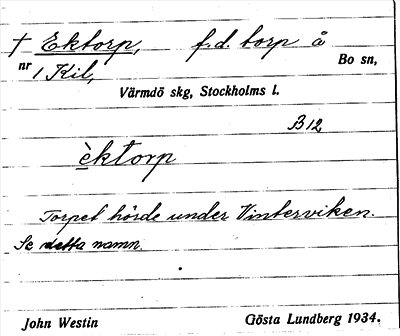 † Ektorp, f.d. torp å Bo sn,
nr 1 Kil,
Värmdö skg, Stockholms l.
B12
èktorp
Torpet hörde under Vinterviken.
Se detta namn.
John Westin Gösta Lundberg 1934.